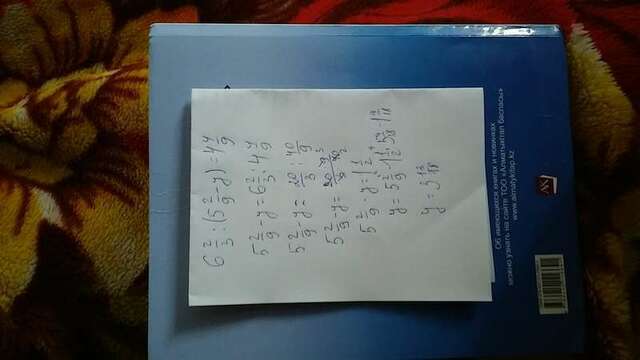 6 2/3 : (5 2/9 - y) = 4 4/9
5 2/9 - y = 6 2/3 : 4 4/9
5 2/9 - y = 20/3 : 40/9
5 2/9 - y = 20 9 3 / 3 40 2
5 2/9 - y = 1 1/2
y = 5 2/9 - 1 1/2 = 5 4/18 - 1 9/18
y = 3 13/18
Об имеющихся книгах и новинках
можно узнать на сайте ТОО «Алматыкітап баспасы»
www.almatykitap.kz
АК